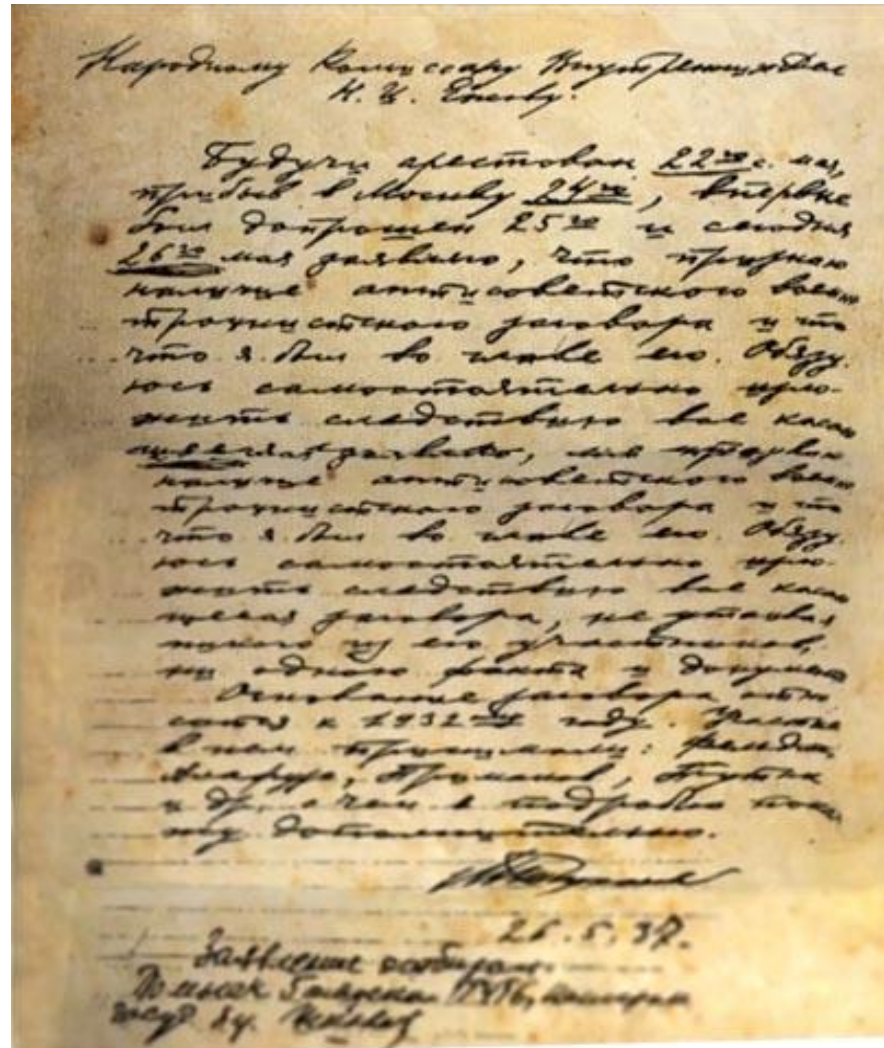 Народному Комиссару Внутренних Дел
Н. И. Ежову.
Будучи арестован 22го с. мая,
прибыв в Москву 24го, впервые
был допрошен 25го и сегодня
26го мая заявляю, что признаю
наличие антисоветского военно
троцкистского заговора и то
что я был во главе его. Обязу
юсь самостоятельно изло-
жить следствию все касаю
щееся
наличие антисоветского военно
троцкистского заговора и то
что я был во главе его. Обязу
юсь самостоятельно изло-
жить следствию все касаю
щееся заговора, не утаивая
никого из его участников,
ни одного факта и документа
Основание заговора отно
сится к 1932му году. Участие
в нем принимали: Фельдман,
Алафузо, Примаков, Путна
и др., о чем я подробно пока
жу дополнительно.
26.5.37.
Заявление отобрал: